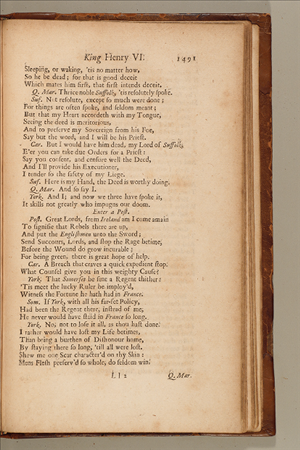 King Henry VI. 1491
Sleeping, or waking, 'tis no matter how,
So he be dead; for that is good deceit
Which mates him first, that first intends deceit.
Q. Mar. Thrice noble Suffolk, 'tis resolutely spoke.
Suf. Not resolute, except so much were done;
For things are often spoke, and seldom meant;
But that my Heart accordeth with my Tongue,
Seeing the deed is meritorious,
And to preserve my Sovereign from his Foe,
Say but the word, and I will be his Priest.
Car. But I would have him dead, my Lord of Suffolk,
E'er you can take due Orders for a Priest:
Say you consent, and censure well the Deed,
And I'll provide his Executioner,
I tender so the safety of my Liege.
Suf. Here is my Hand, the Deed is worthy doing.
Q. Mar. And so say I.
York. And I; and now we three have spoke it,
It skills not greatly who impugns our doom.
Enter a Post.
Post. Great Lords, from Ireland am I come amain
To signifie that Rebels there are up,
And put the Englishmen unto the Sword;
Send Succours, Lords, and stop the Rage betime,
Before the Wound do grow incurable;
For being green, there is great hope of help.
Car. A Breach that craves a quick expedient stop.
What Counsel give you in this weighty Cause?
York. That Somerset be sent a Regent thither:
'Tis meet the lucky Ruler be imploy'd,
Witness the Fortune he hath had in France.
Som. If York, with all his far-fet Policy,
Had been the Regent there, instead of me,
He never would have staid in France so long.
York. No, not to lose it all, as thou hast done.
I rather would have lost my Life betimes,
Than bring a burthen of Dishonour home,
By staying there so long, 'till all were lost.
Shew me one Scar character'd on thy Skin:
Mens Flesh preserv'd so whole, do seldom win.
Q. Mar.